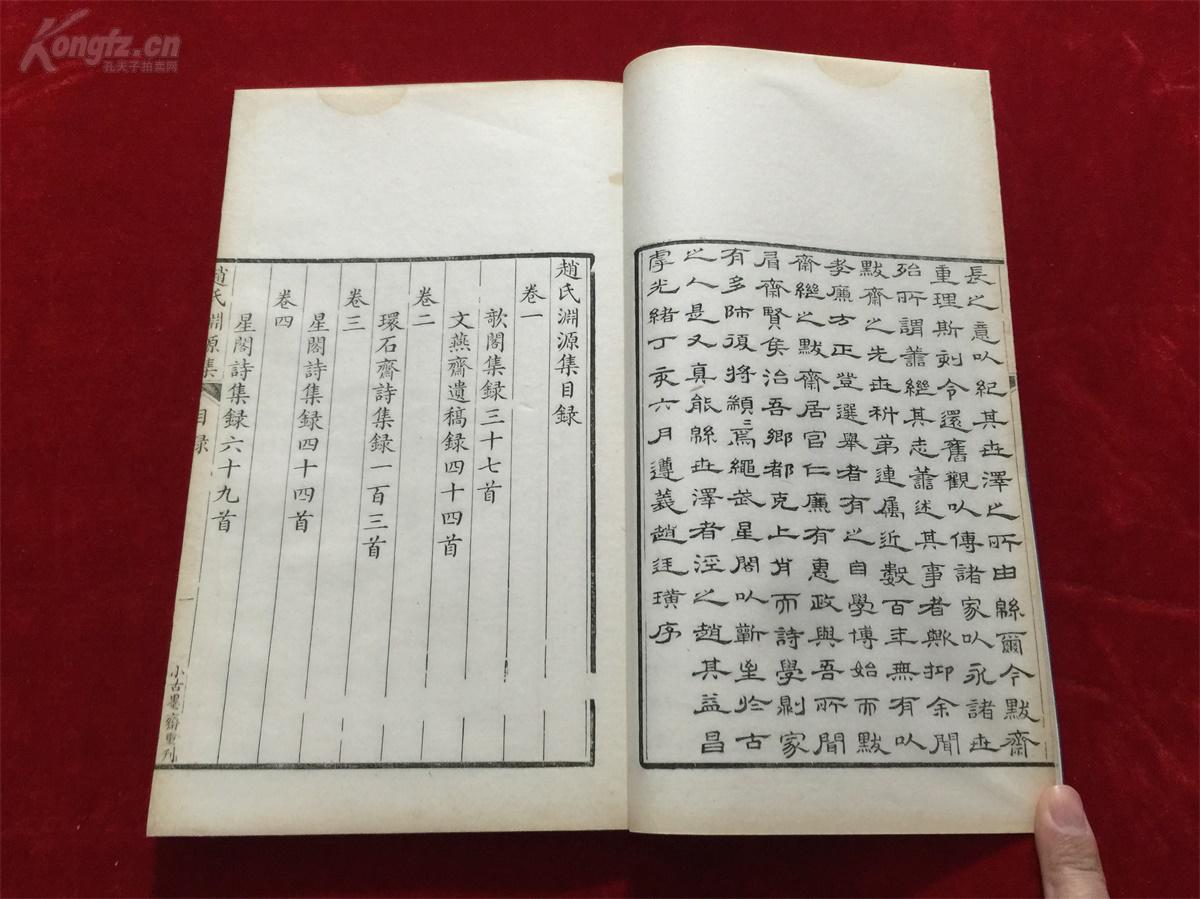 Kongfz.cn
孔夫子拍卖网
長之意以紀其世澤之所由緜爾今默齋
重理斯刻令還舊觀以傳諸家以永諸世
殆所謂善繼其志善述其事者與抑余聞
默齋之先世科第連属近數百年無有以
孝廉方正登選舉者有之自學博始而默
齋繼之默齋居官仁廉有惠政與吾所聞
眉齋賢矦治吾鄉都克上肖而詩學剔家
有多師須將纈〻爲繩武星閣以蘄坒於古
之人是又真能緜世澤者涇之趙其益昌
虖光緒丁亥六月遵義趙廷璜序
趙氏淵源集目録
卷一
歌閣集録三十七首
文燕齋遺稿録四十四首
卷二
環石齋詩集録一百三首
卷三
星閣詩集録四十四首
卷四
星閣詩集録六十九首
趙氏淵源集 目録 一 小古墨齋重刊